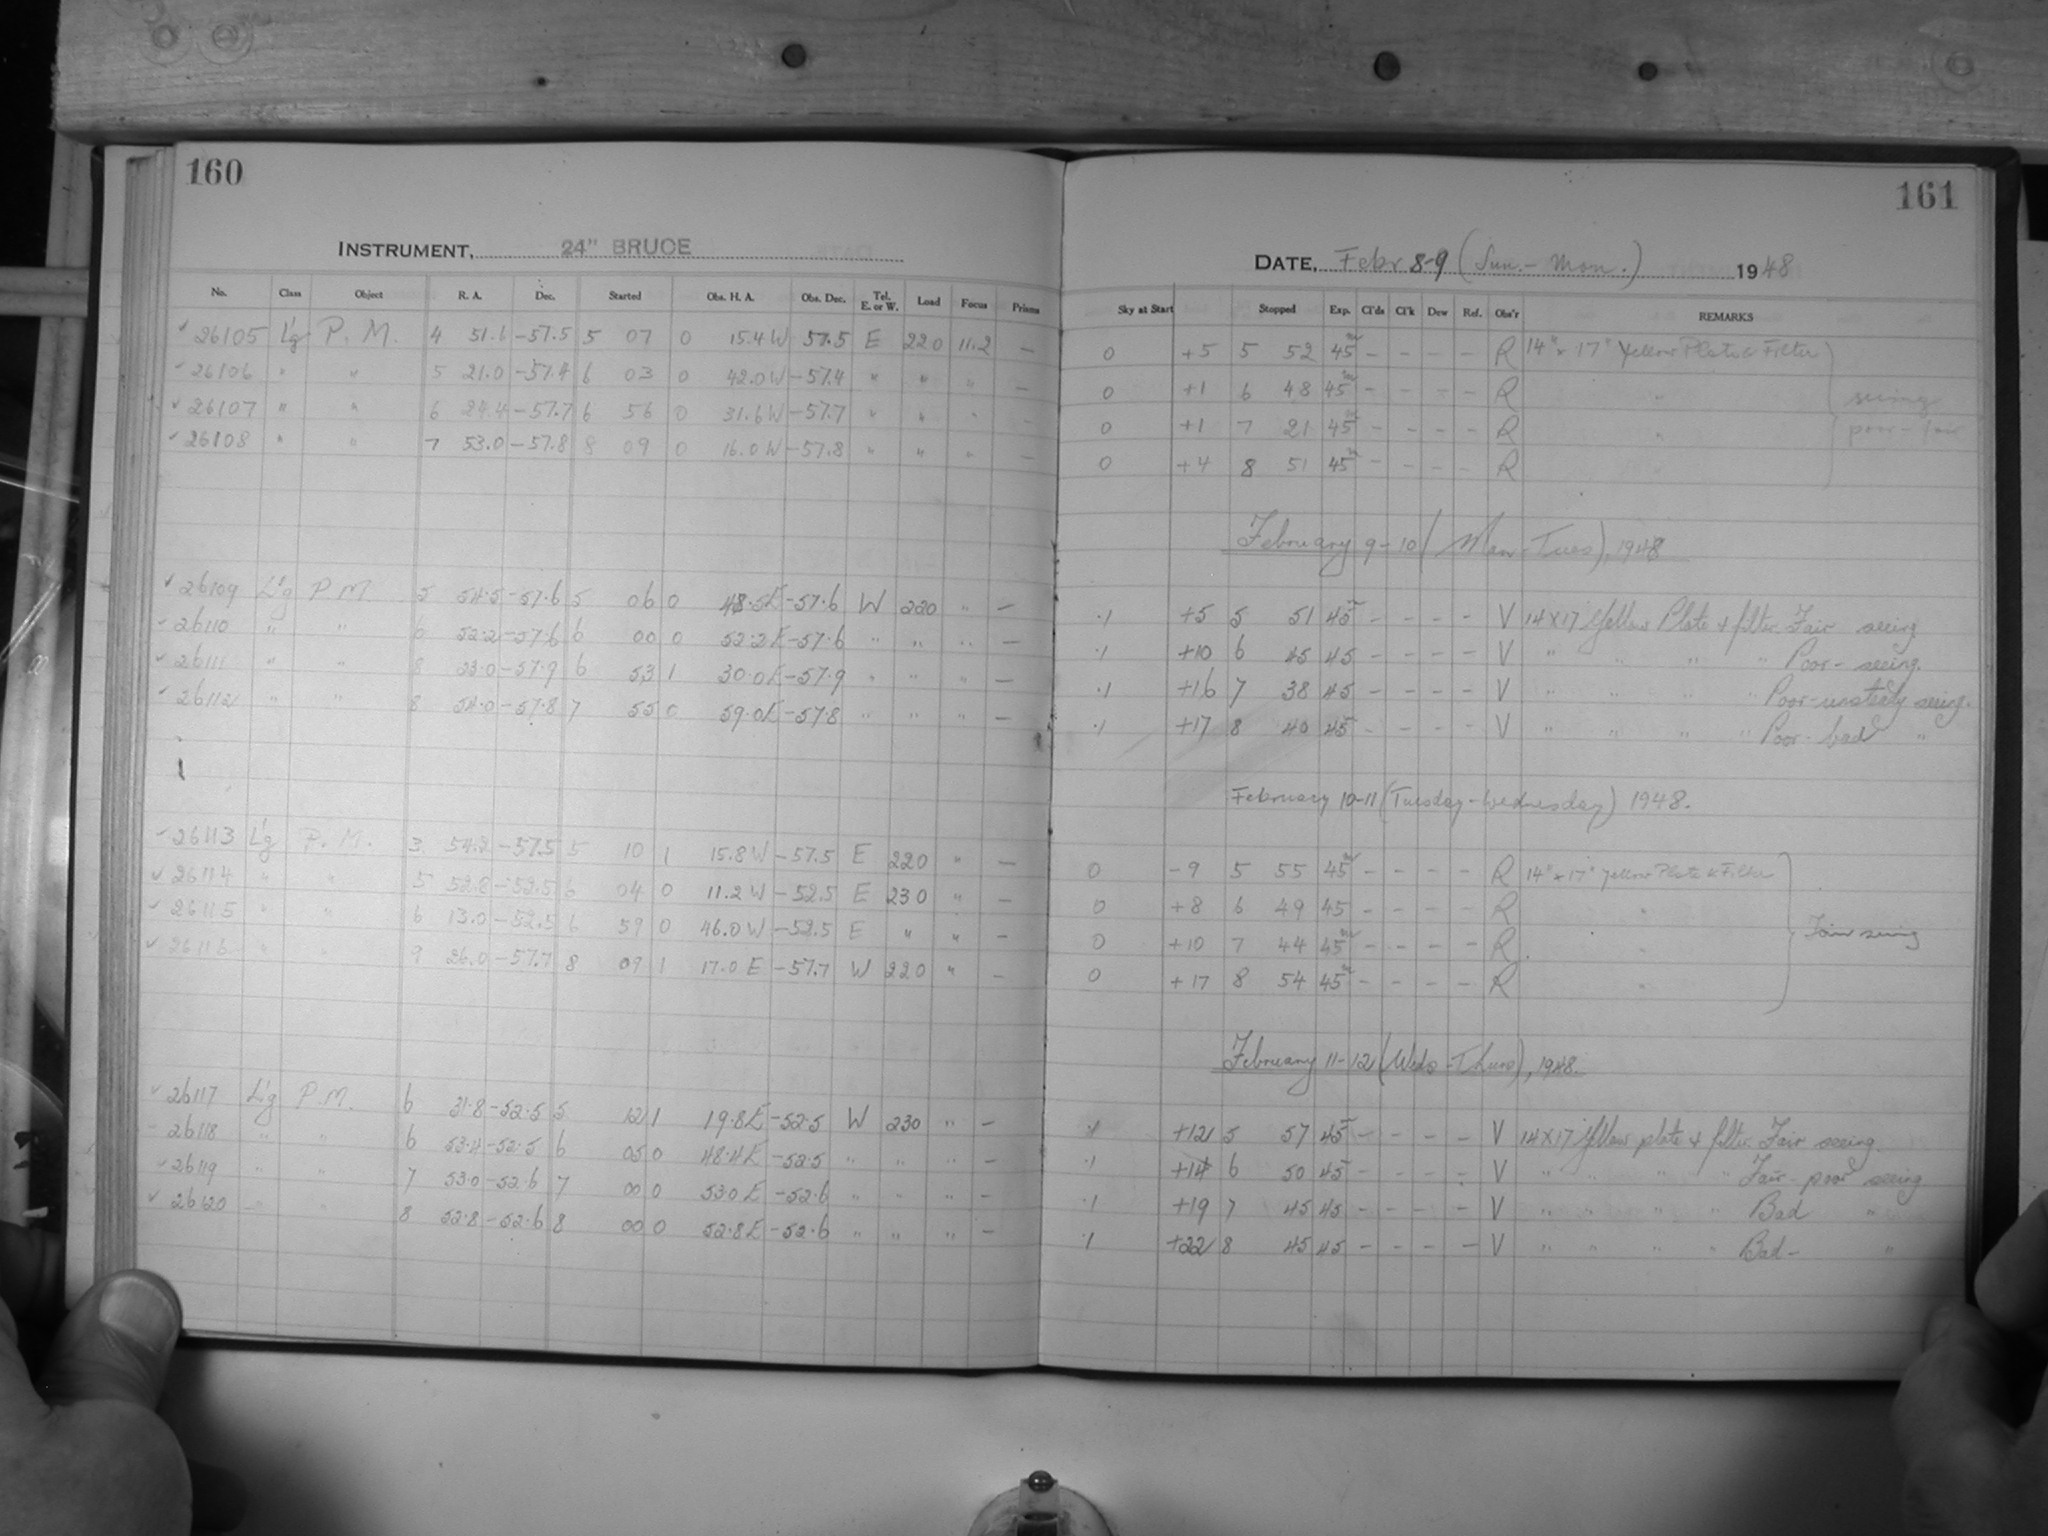 160
INSTRUMENT, 24" BRUCE
No. Class Object R. A. Dec. Started Obs. H. A. Obs. Dec. Tel. E. or W. Load Focus Prisms
✓ 26105 L'g P. M. 4 51.6 -57.5 5 07 0 15.4 W 57.5 E 220 11.2 —
- 26106 " " 5 21.0 -57.4 6 03 0 42.0 W -57.4 " " " —
✓ 26107 " " 6 24.4 -57.7 6 56 0 31.6 W -57.7 " " " —
✓ 26108 " " 7 53.0 -57.8 8 09 0 16.0 W -57.8 " " " —
✓ 26109 L'g P M. 5 54.5 -57.6 5 06 0 48.5 E -57.6 W 220 " —
- 26110 " " 6 52.2 -57.6 6 00 0 52.2 E -57.6 " " " —
✓ 26111 " " 8 23.0 -57.9 6 53 1 30.0 E -57.9 " " " —
✓ 26112 " " 8 54.0 -57.8 7 55 0 59.0 E -57.8 " " " —
- 26113 L'g P. M. 3 54.2 -57.5 5 10 1 15.8 W -57.5 E 220 " —
✓ 26114 " " 5 52.8 -52.5 6 04 0 11.2 W -52.5 E 230 " —
✓ 26115 " " 6 13.0 -52.5 6 59 0 46.0 W -52.5 E " " —
✓ 26116 " " 9 26.0 -57.7 8 09 1 17.0 E -57.7 W 220 " —
✓ 26117 L'g P.M. 6 31.8 -52.5 5 12 1 19.8 E -52.5 W 230 " —
- 26118 " " 6 53.4 -52.5 6 05 0 48.4 E -52.5 " " " —
- 26119 " " 7 53.0 -52.6 7 00 0 53.0 E -52.6 " " " —
✓ 26120 " " 8 52.8 -52.6 8 00 0 52.8 E -52.6 " " " —
161
DATE, Febr 8-9 (Sun. - Mon.) 1948
Sky at Start Stopped Exp. Cl'ds Cl'k Dew Ref. Obs'r REMARKS
0 +5 5 52 45m - - - - R 14" x 17" Yellow Plate & Filter
0 +1 6 48 45m - - - - R " seeing
0 +1 7 21 45m - - - - R " poor - fair
0 +4 8 51 45m - - - - R "
February 9-10 (Mon - Tues), 1948
.1 +5 5 51 45m - - - - V 14 x 17 Yellow Plate & filter. Fair seeing
.1 +10 6 45 45 - - - - V " " " " Poor - seeing.
.1 +16 7 38 45 - - - - V " " " " Poor-unsteady seeing.
.1 +17 8 40 45 - - - - V " " " " Poor - bad "
February 10-11 (Tuesday - Wednesday) 1948.
0 -9 5 55 45m - - - - R 14" x 17" Yellow Plate & Filter
0 +8 6 49 45 - - - - R "
0 +10 7 44 45m - - - - R " Fair seeing
0 +17 8 54 45m - - - - R "
February 11-12 (Weds - Thurs), 1948.
.1 +12 5 57 45m - - - - V 14 x 17 Yellow plate & filter. Fair seeing.
.1 +14 6 50 45 - - - - V " " " " Fair - poor seeing
.1 +19 7 45 45 - - - - V " " " " Bad "
.1 +22 8 45 45 - - - - V " " " " Bad - "